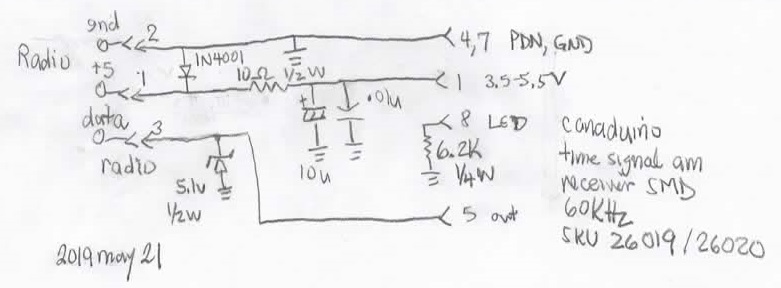 gnd
2
4,7 PDN, GND
Radio
1N4001
+5
1
10Ω 1/2W
1 3.5-5.5V
.01u
data
3
radio
8 LED
6.2K
1/4W
10u
5.1v
1/2W
5 out
canaduino
time signal am
receiver SMD
60KHz
SKU 26019/26020
2019 may 21